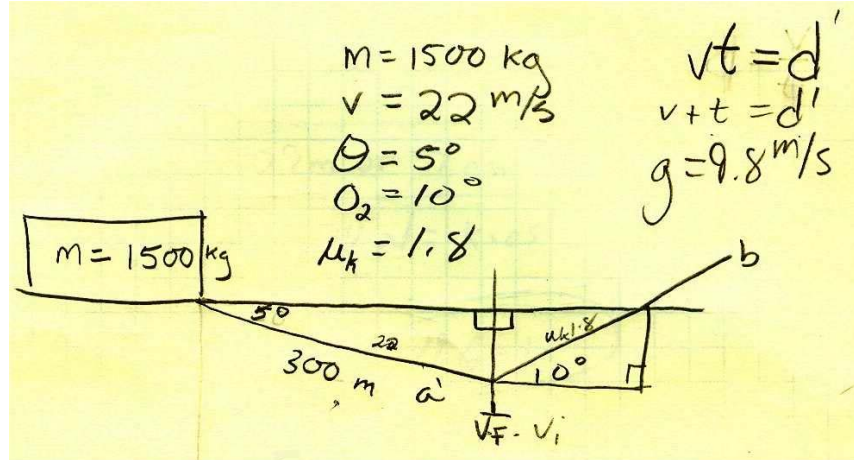 m = 1500 kg
v = 22 m/s
θ = 5°
θ₂ = 10°
μk = 1.8
vt = d'
v + t = d'
g = 9.8 m/s
m = 1500 kg
5°
22
300 m
a'
μk 1.8
10°
b
VF - Vi